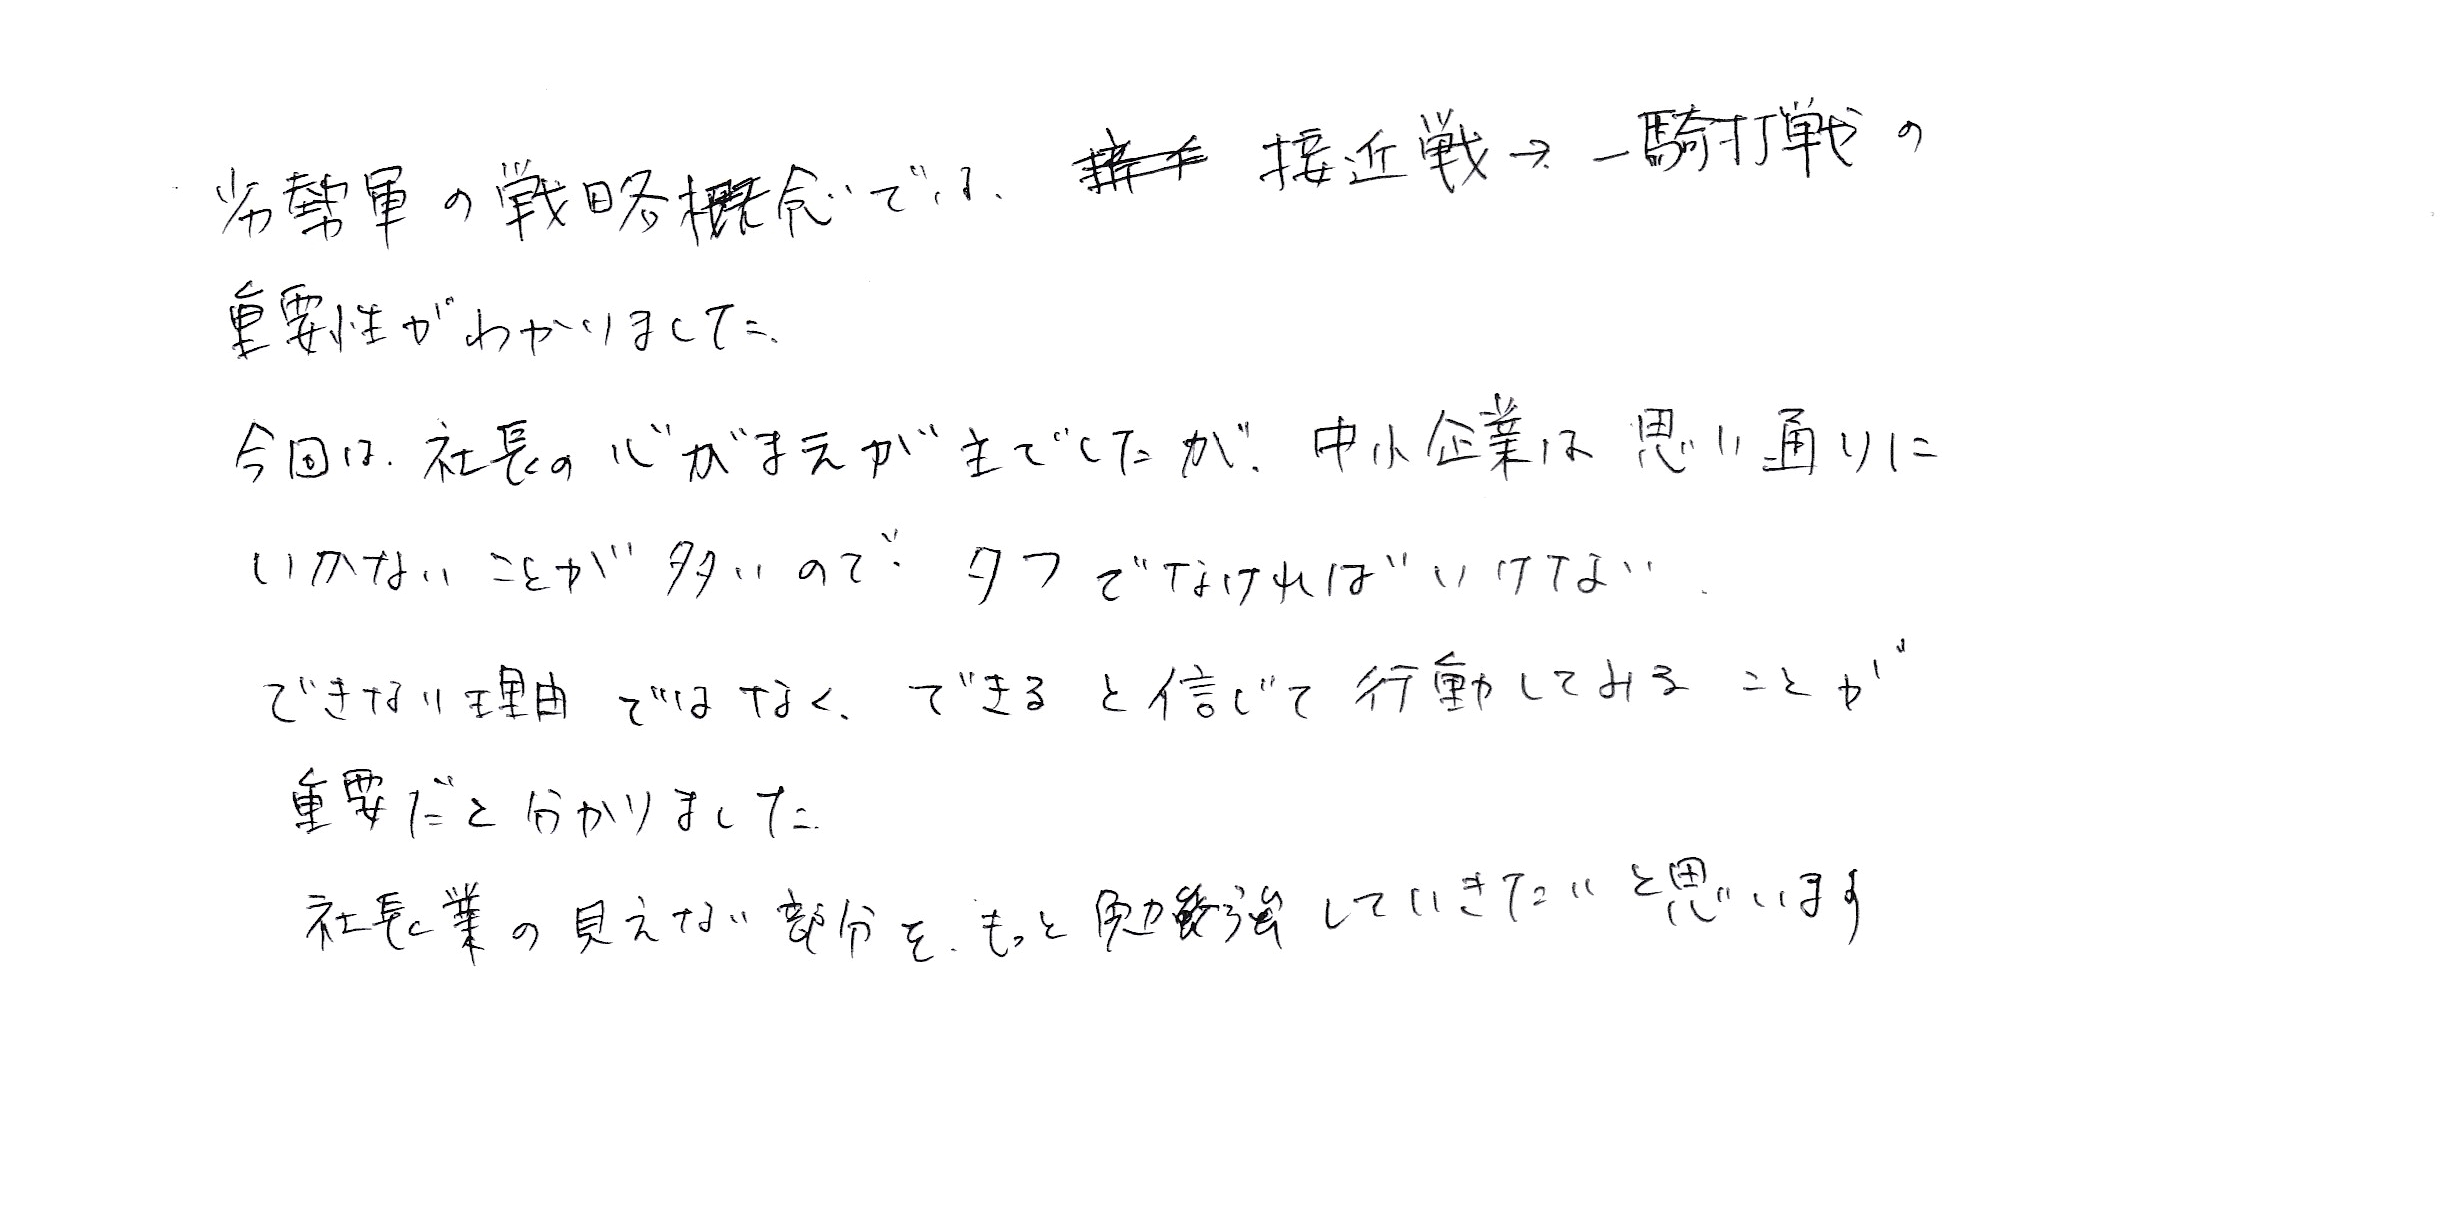 劣勢軍の戦略概念では、接近戦→一騎打戦の
重要性がわかりました。
今回は、社長の心がまえが主でしたが、中小企業は思い通りに
いかないことが多いので、タフでなければいけない。
できない理由ではなく、できると信じて行動してみることが
重要だと分かりました。
社長業の見えない部分を、もっと勉強していきたいと思います